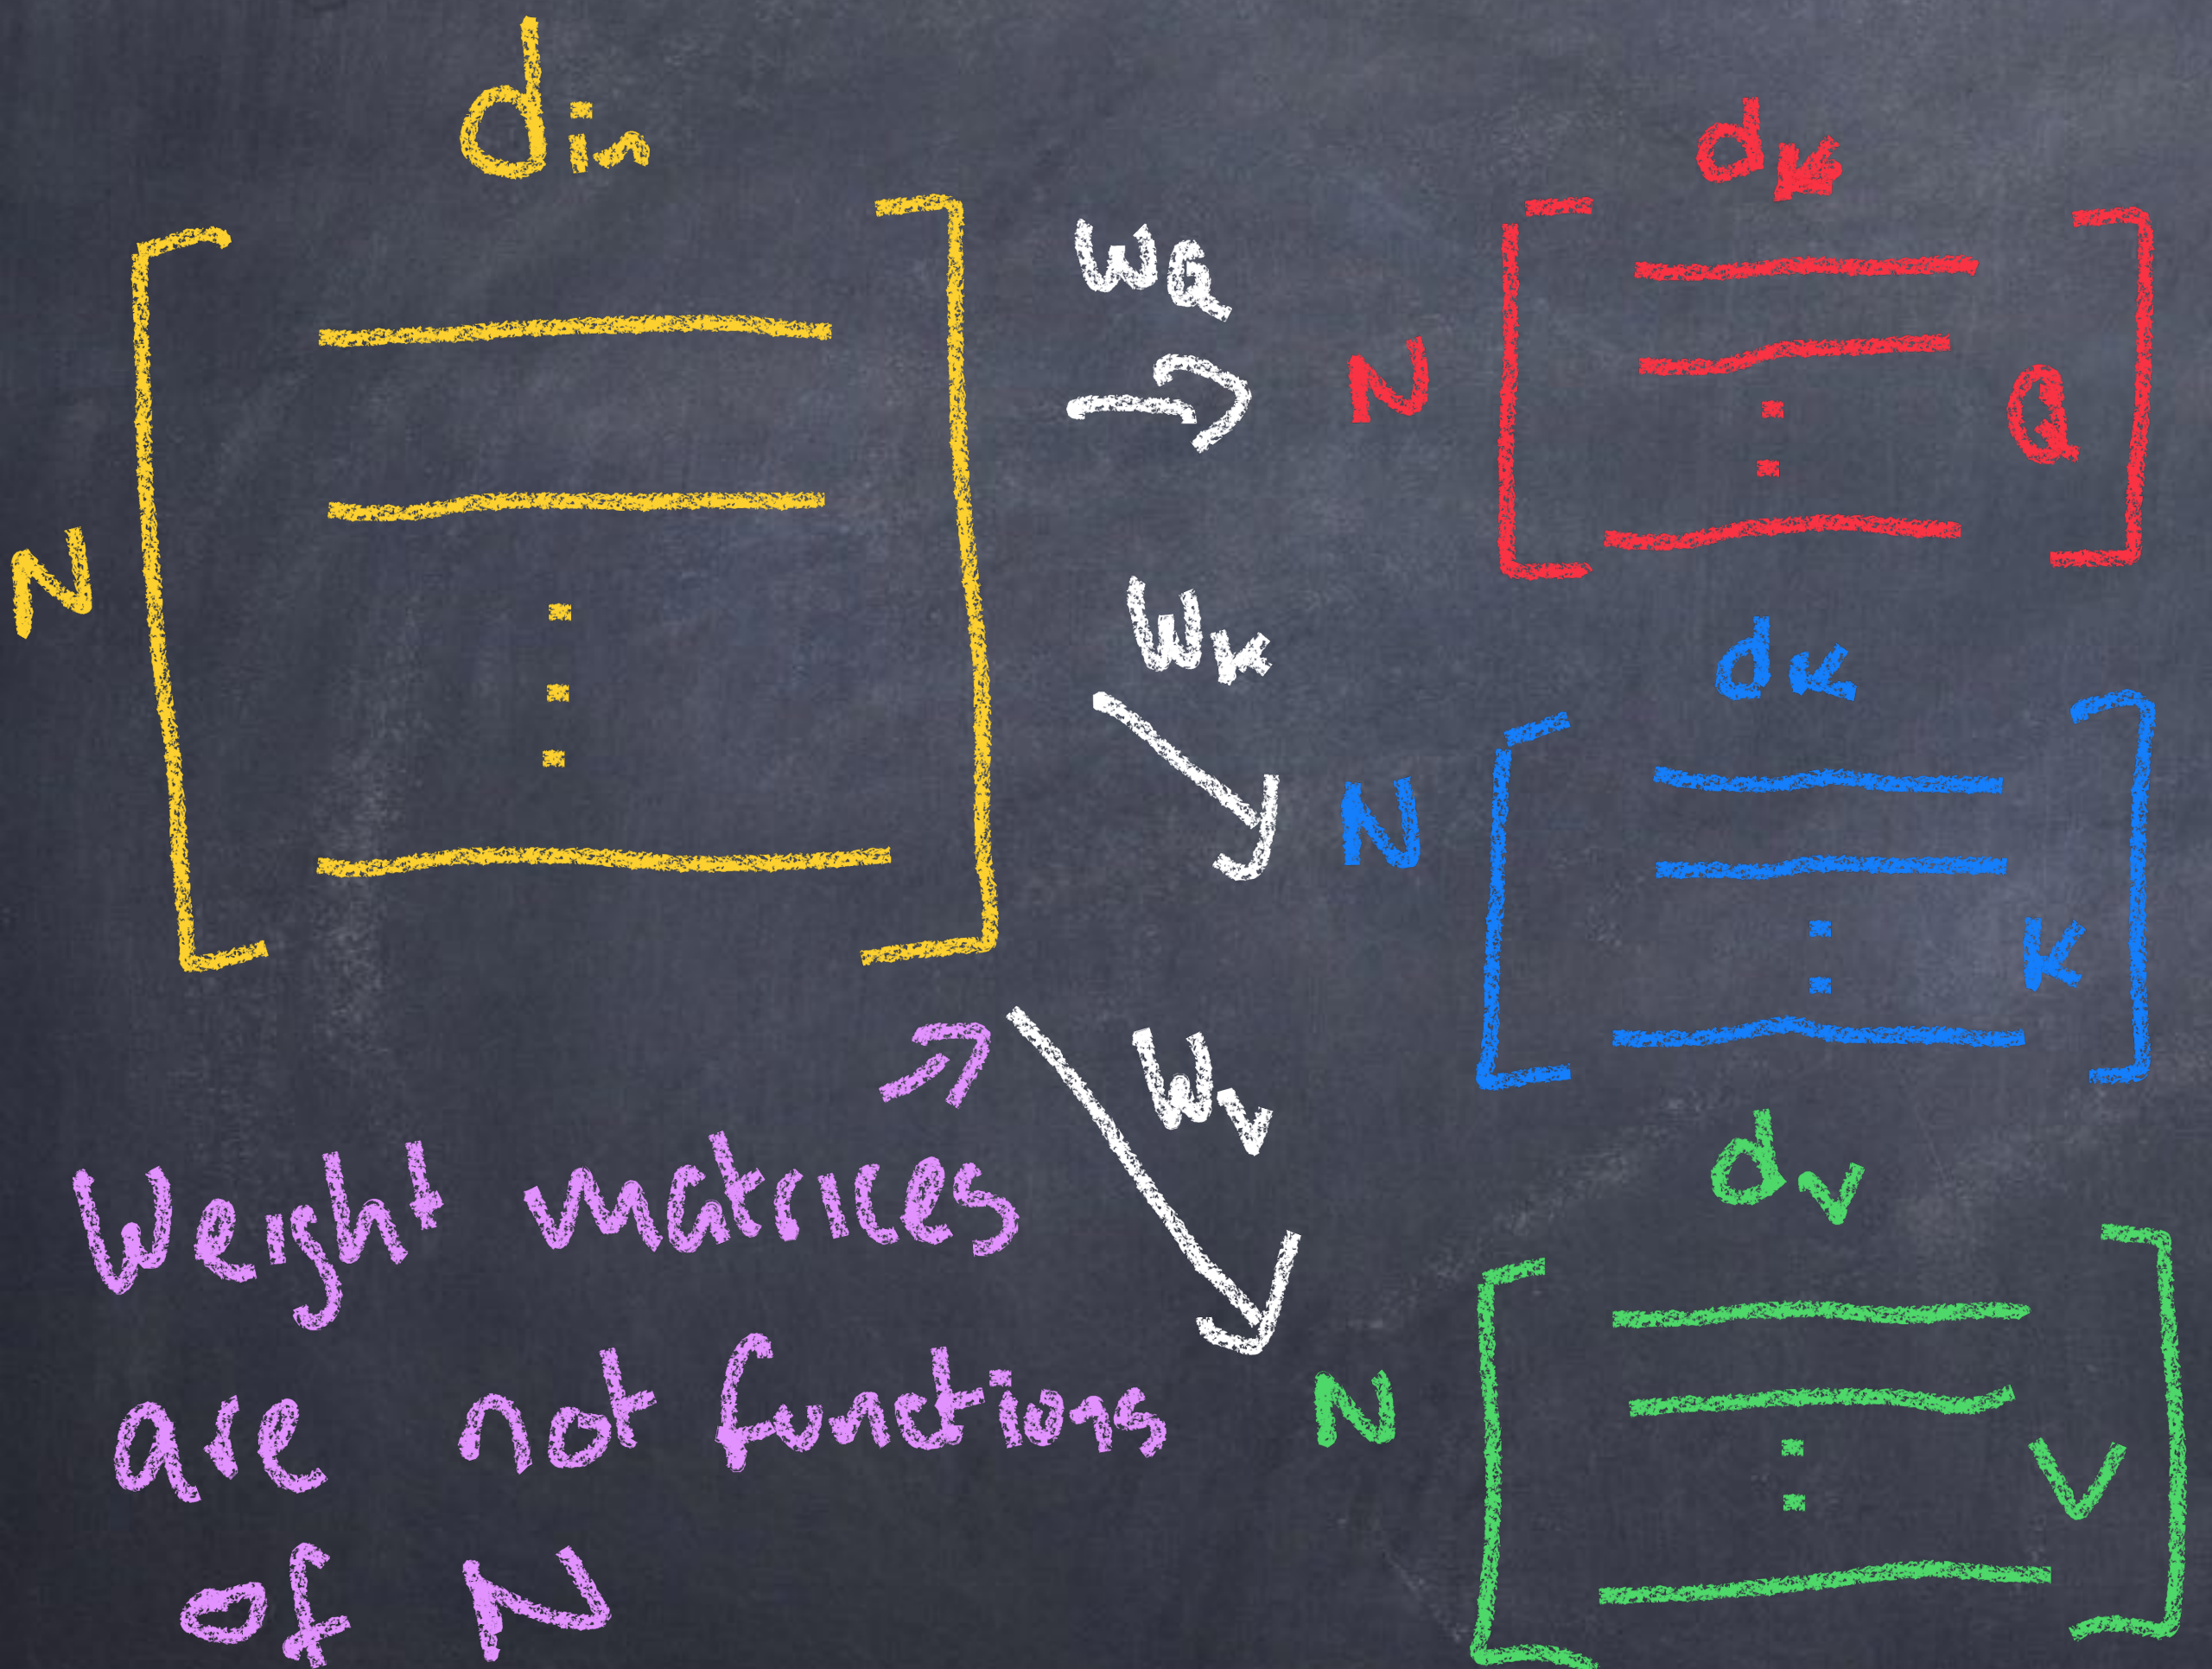 din
N
WQ
N
dk
Q
Wk
N
dk
K
Wv
N
dv
V
Weight matrices
are not functions
of N